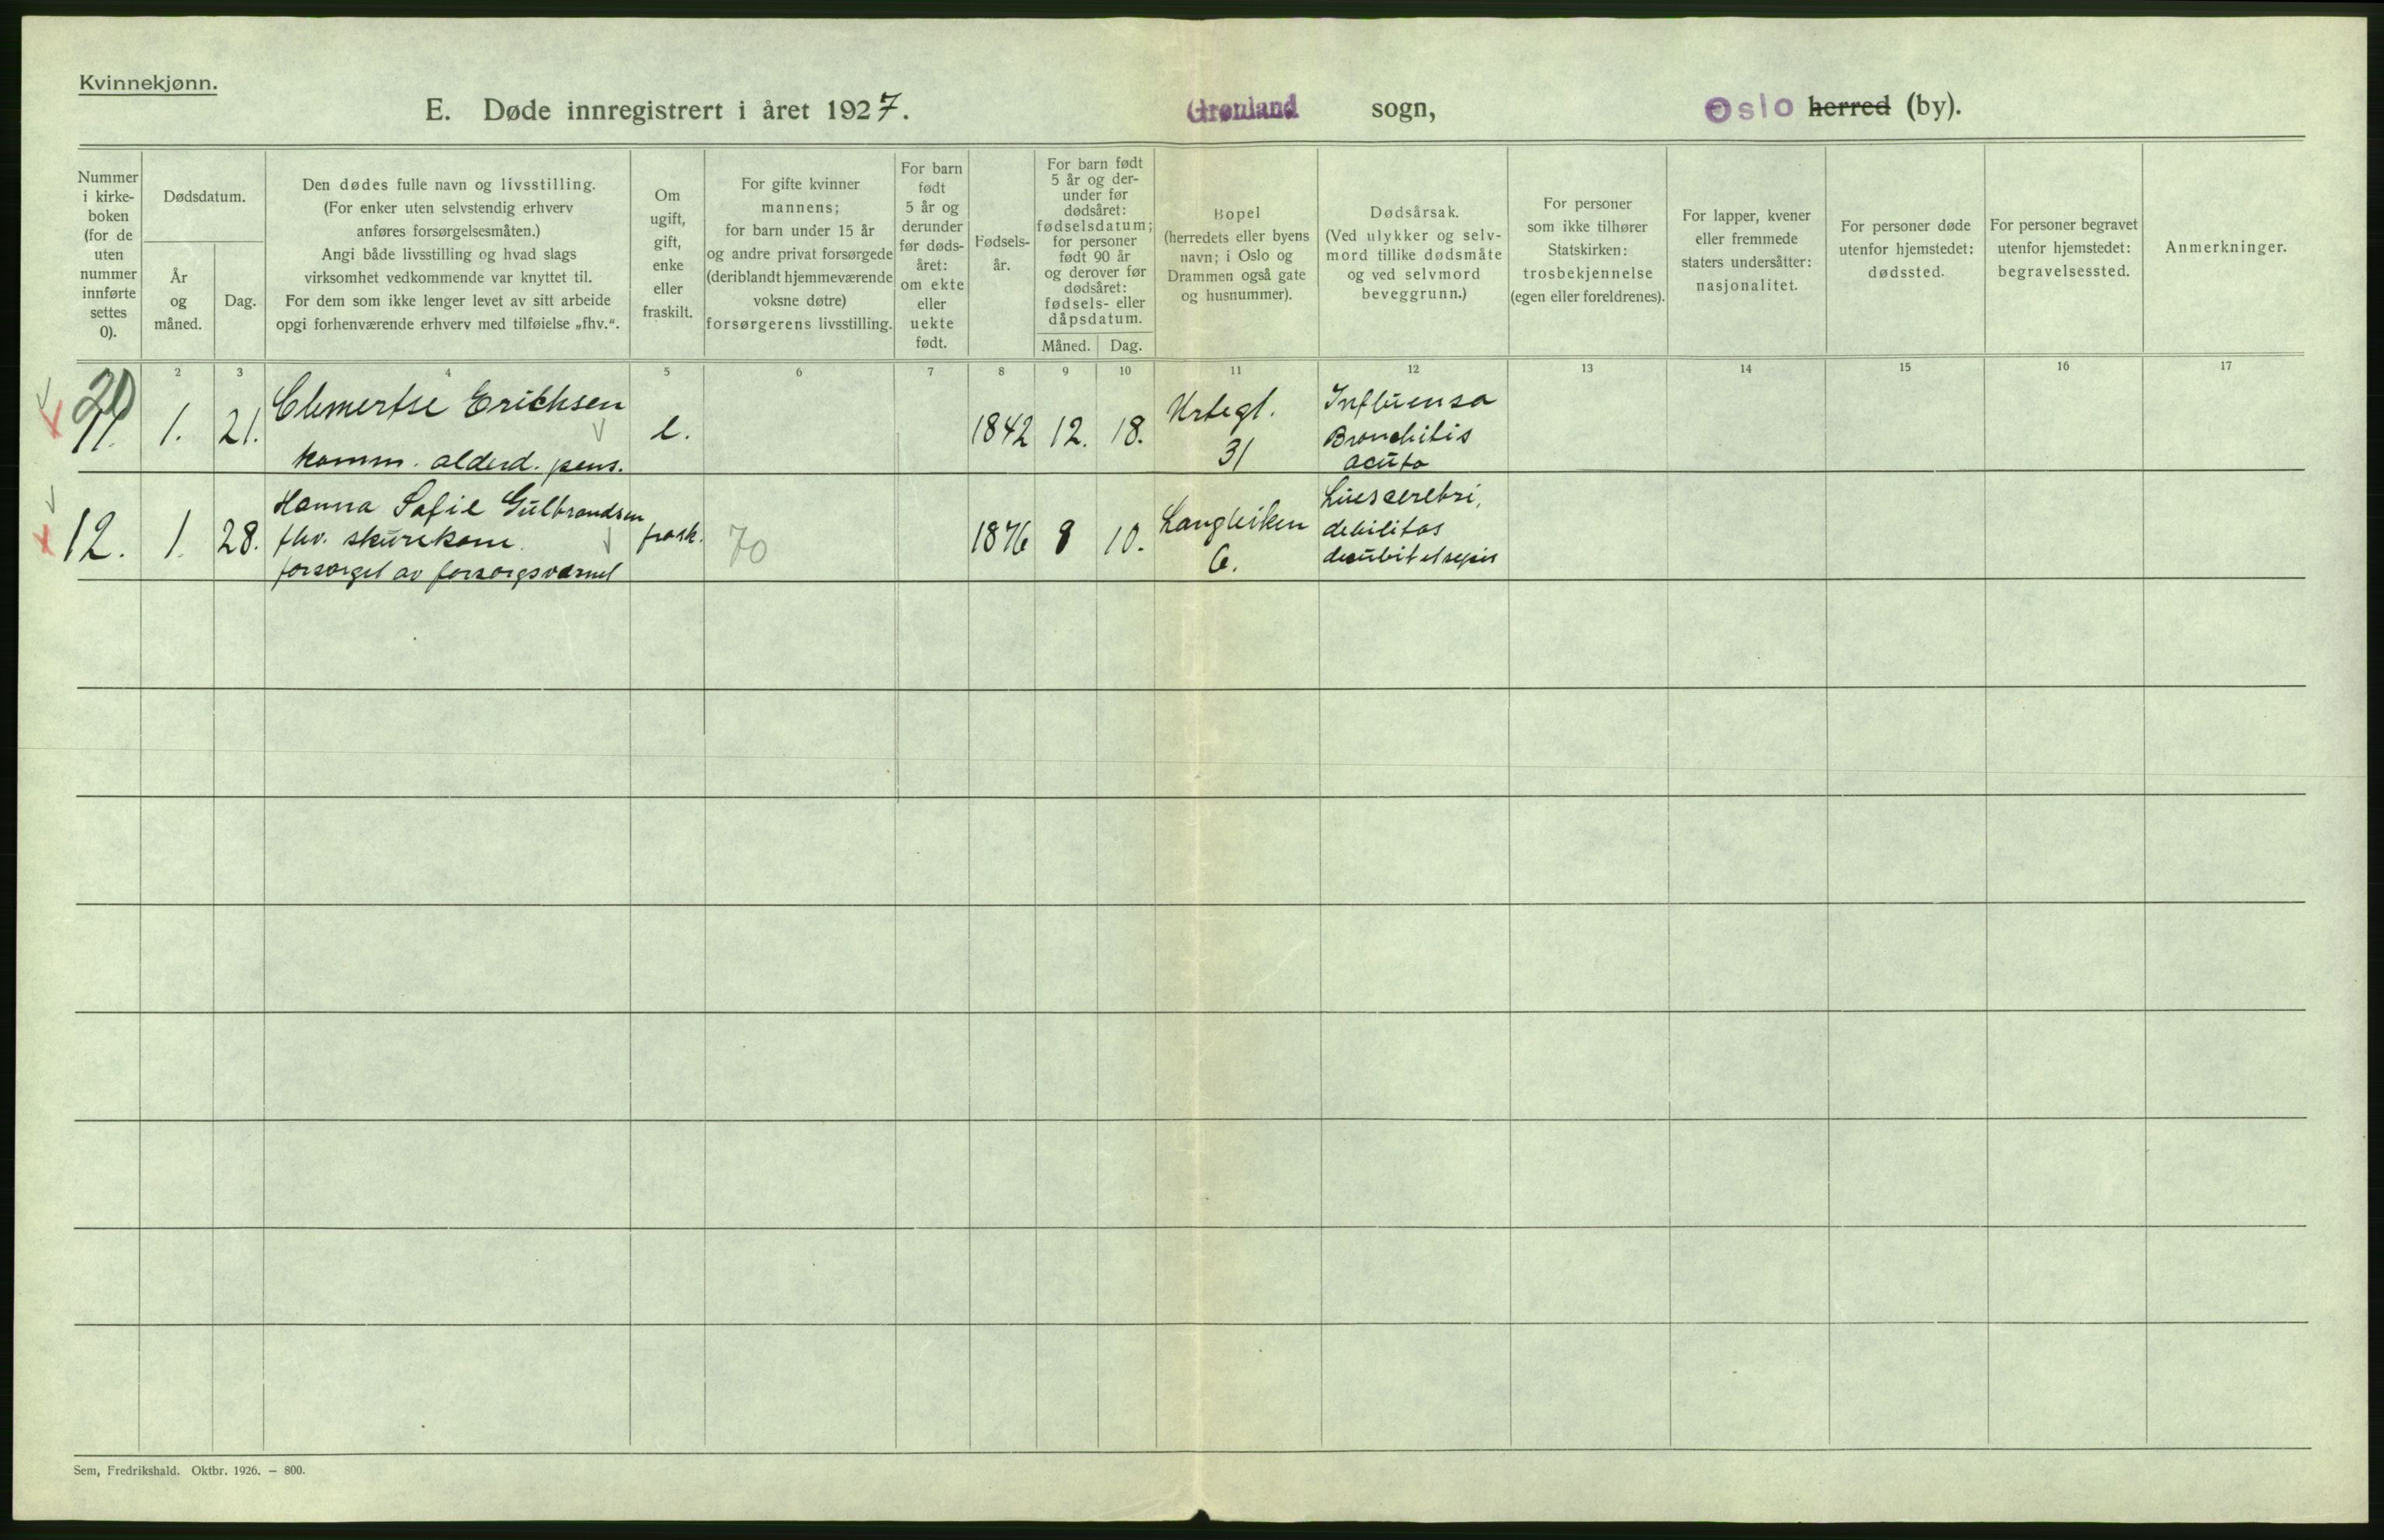 Kvinnekjønn.
E. Døde innregistrert i året 1927. Grønland sogn, Oslo herred (by).
Nummer i kirkeboken (for de uten nummer innførte settes 0).
Dødsdatum.
År og måned.
Dag.
Den dødes fulle navn og livsstilling.
(For enker uten selvstendig erhverv
anføres forsørgelsesmåten.)
Angi både livsstilling og hvad slags
virksomhet vedkommende var knyttet til.
For dem som ikke lenger levet av sitt arbeide
opgi forhenværende erhverv med tilføielse „fhv.“.
Om
ugift,
gift,
enke
eller
fraskilt.
For gifte kvinner
mannens;
for barn under 15 år
og andre privat forsørgede
(deriblandt hjemmeværende
voksne døtre)
forsørgerens livsstilling.
For barn
født
5 år og
derunder
før døds-
året:
om ekte
eller
uekte
født.
Fødsels-
år.
For barn født
5 år og der-
under før
dødsåret:
fødselsdatum;
for personer
født 90 år
og derover før
dødsåret:
fødsels- eller
dåpsdatum.
Måned. Dag.
Bopel
(herredets eller byens
navn; i Oslo og
Drammen også gate
og husnummer).
Dødsårsak.
(Ved ulykker og selv-
mord tillike dødsmåte
og ved selvmord
beveggrunn.)
For personer
som ikke tilhører
Statskirken:
trosbekjennelse
(egen eller foreldrenes).
For lapper, kvener
eller fremmede
staters undersåtter:
nasjonalitet.
For personer døde
utenfor hjemstedet:
dødssted.
For personer begravet
utenfor hjemstedet:
begravelsessted.
Anmerkninger.
2 3 4 5 6 7 8 9 10 11 12 13 14 15 16 17
20
11. 1. 21. Erichsen e. 1842 12. 18. Urtegt. 31 Influensa
Bronchitis
acuta
komm. alderd. pens.
12. 1. 28. Hanna Sofie Gulbrandsen
fhv. skurekone
forsørget av forsorgsvæsnet
frask. 70 1876 8 10. Langleiken 6.
Lues cerebri,
debilitas
decubit et sepsis
Sem, Fredrikshald. Oktbr. 1926. — 800.